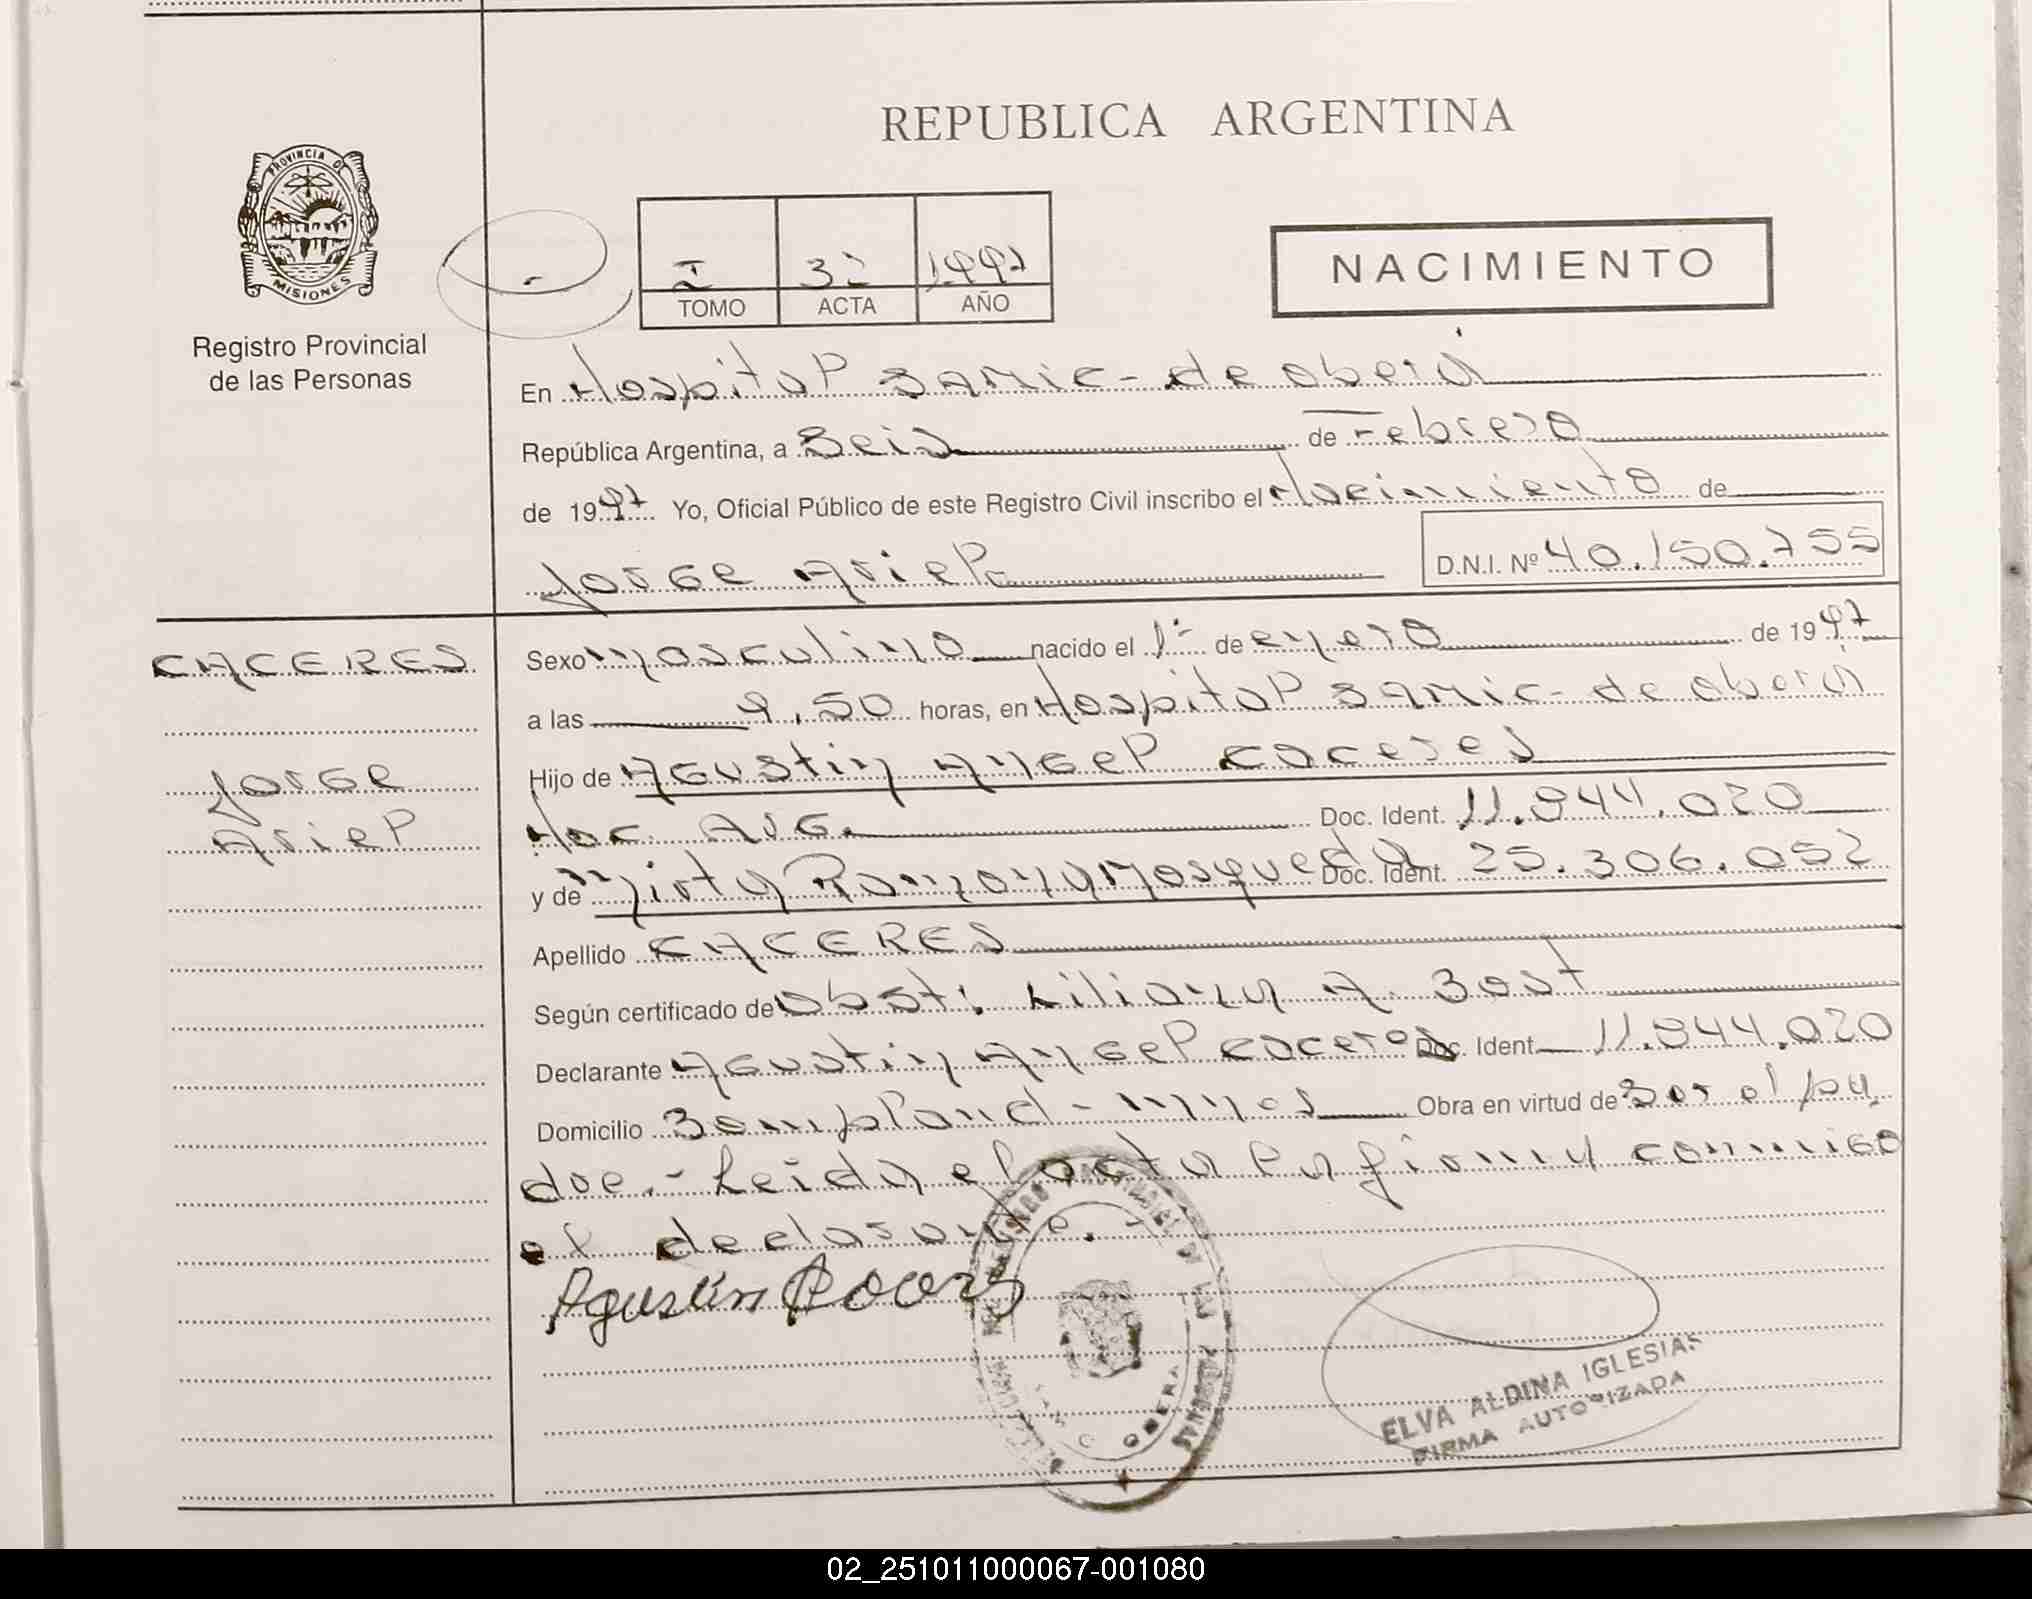 REPUBLICA ARGENTINA
PROVINCIA DE
MISIONES
Registro Provincial
de las Personas
I 32 1997
TOMO ACTA AÑO
NACIMIENTO
En Hospital SAMIC - de Oberá
República Argentina, a Seis de Febrero
de 1997 Yo, Oficial Público de este Registro Civil inscribo el Nacimiento de
Jorge Ariel
D.N.I. Nº 40.150.755
CACERES
Jorge
Ariel
Sexo masculino nacido el 1º de enero de 1997
a las 9,50 horas, en Hospital SAMIC - de Oberá
Hijo de Agustin Angel Caceres
Nac. Arg. Doc. Ident. 11.944.020
y de Mirta Ramona Mosqueda Doc. Ident. 25.306.052
Apellido CACERES
Según certificado de Obst: Liliana A.
Declarante Agustin Angel Caceres Doc. Ident. 11.944.020
Domicilio - Mnes Obra en virtud de Ser el pa
dre.- Leida el acta la firma conmigo
el declarante.-
Agustin
OBERA
ELVA ALDINA IGLESIAS
FIRMA AUTORIZADA
02_251011000067-001080